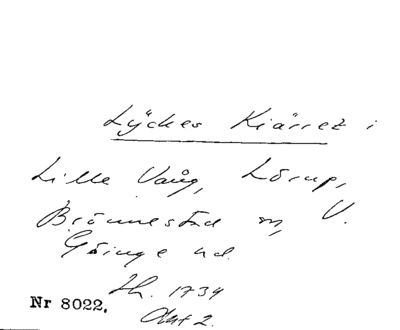 Lÿckes Kiärret i
Lille Vång, Lörup,
Brönnestad sn, V.
Göinge hd.
Lh. 1734
Akt 2.
Nr 8022.